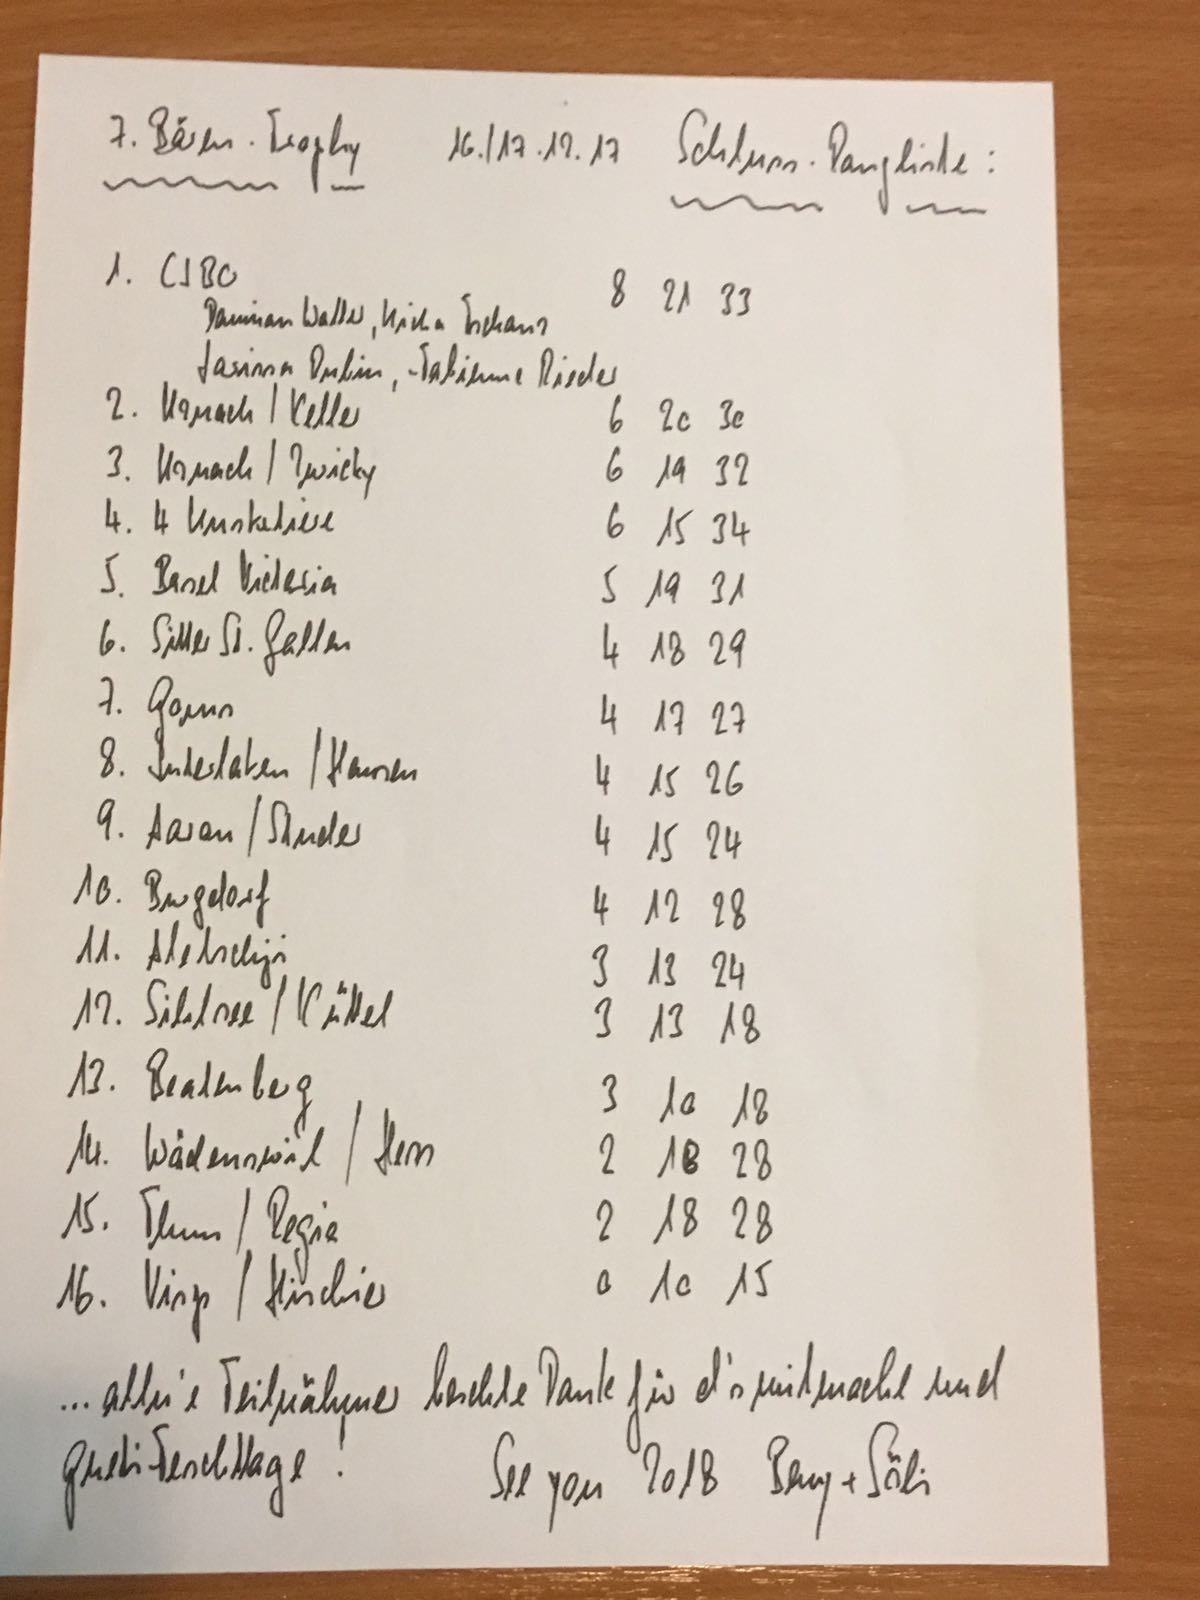 7. Bären-Trophy 16./17.12.17 Schluss-Rangliste:
1. CSBO 8 21 33
Damian Walter, Micha Tschanz
Jasima Rubin, Fabienne Rieder
2. Uzwach / Keller 6 20 30
3. Uzwach / Zwicky 6 19 32
4. 4 Musketiere 6 15 34
5. Basel Victoria 5 19 31
6. Sitter St. Gallen 4 18 29
7. Goms 4 17 27
8. Interlaken / Hansen 4 15 26
9. Aarau / Studer 4 15 24
10. Burgdorf 4 12 28
11. Aletschji 3 13 24
12. Sihlsee / Küttel 3 13 18
13. Beatenberg 3 10 18
14. Wädenswil / Hess 2 18 28
15. Thun / Regio 2 18 28
16. Visp / Hischier 0 10 15
...alln'e Teilnähmer beschte Dank für d's mitmache und
gueti Feschttage!
See you 2018 Beny + Söli